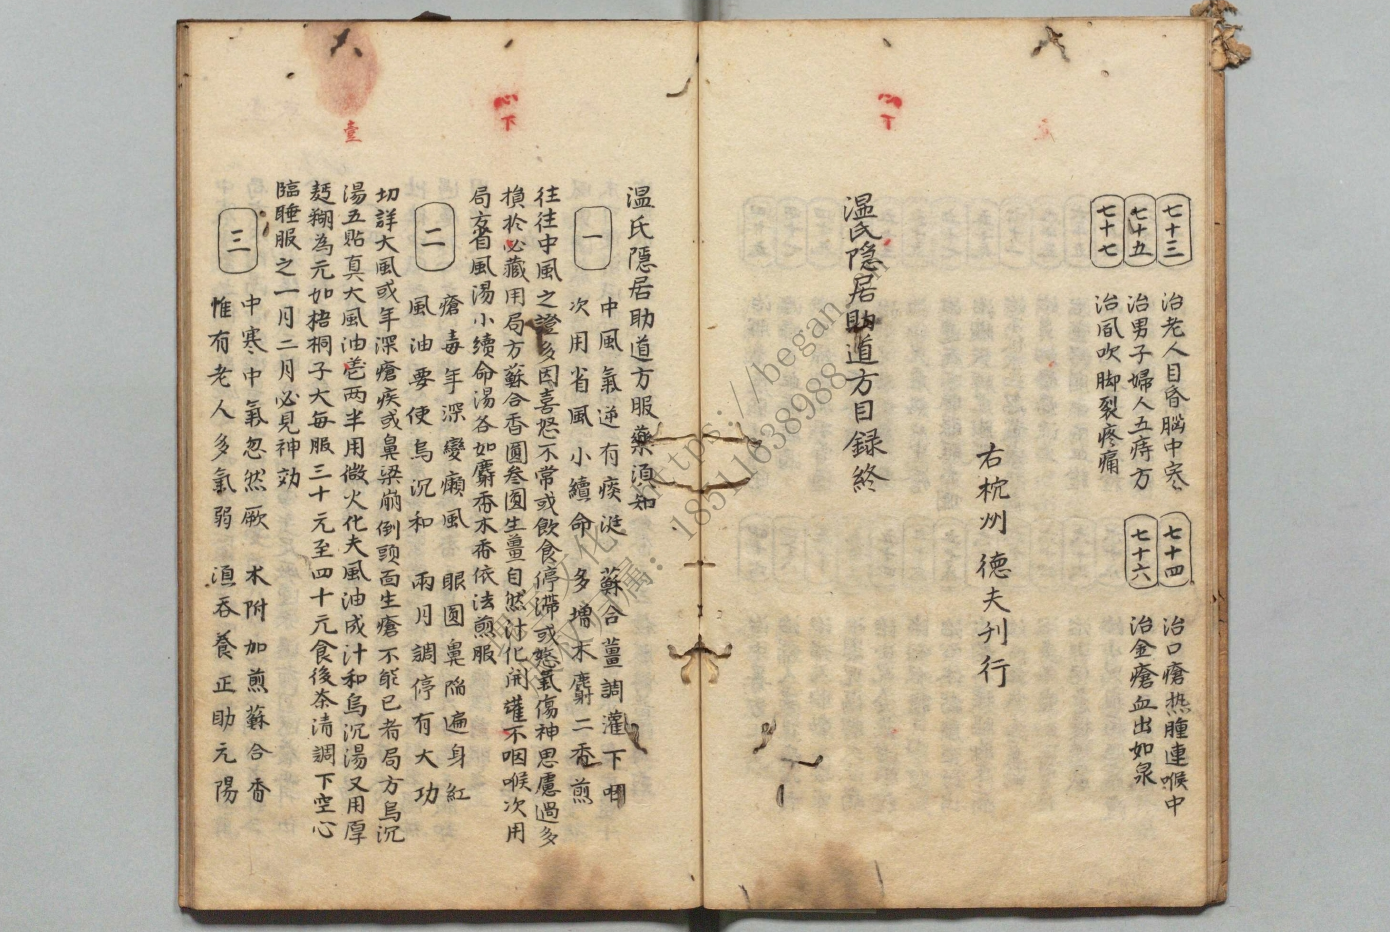 七十三 治老人目昏腦中寒 七十四 治口瘡热腫連喉中
七十五 治男子婦人五痔方 七十六 治金瘡血出如泉
七十七 治風吹脚裂疼痛
右杭州 德夫刊行
温氏隐居助道方目録終
心下
温氏隱居助道方服藥湏知
一 中風氣逆有痰涎 蘇合薑調灌下咽
次用省風小續命 多增木麝二香煎
往往中風之證多因喜怒不常或飲食停滯或怒氣傷神思慮過多
損於必藏用局方蘇合香圓叁圓生薑自然汁化開灌下咽喉次用
局方省風湯小續命湯各如麝香木香依法煎服
心下
二 瘡毒年深變癩風 眉眼圆鼻陷遍身紅
風油要使烏沉和 兩月調停有大功
切詳大風或年深瘡疾或鼻梁崩倒頭面生瘡不能已者局方烏沉
湯五貼真大風油壱两半用微火化大風油成汁和烏沉湯又用厚
麪糊為元如梧桐子大每服三十元至四十元食後茶清調下空心
臨睡服之一月二月必見神効
三 中寒中氣忽然厥 木附加煎蘇合香
惟有老人多氣弱 湏吞養正助元陽
壹
https://began
18511638988